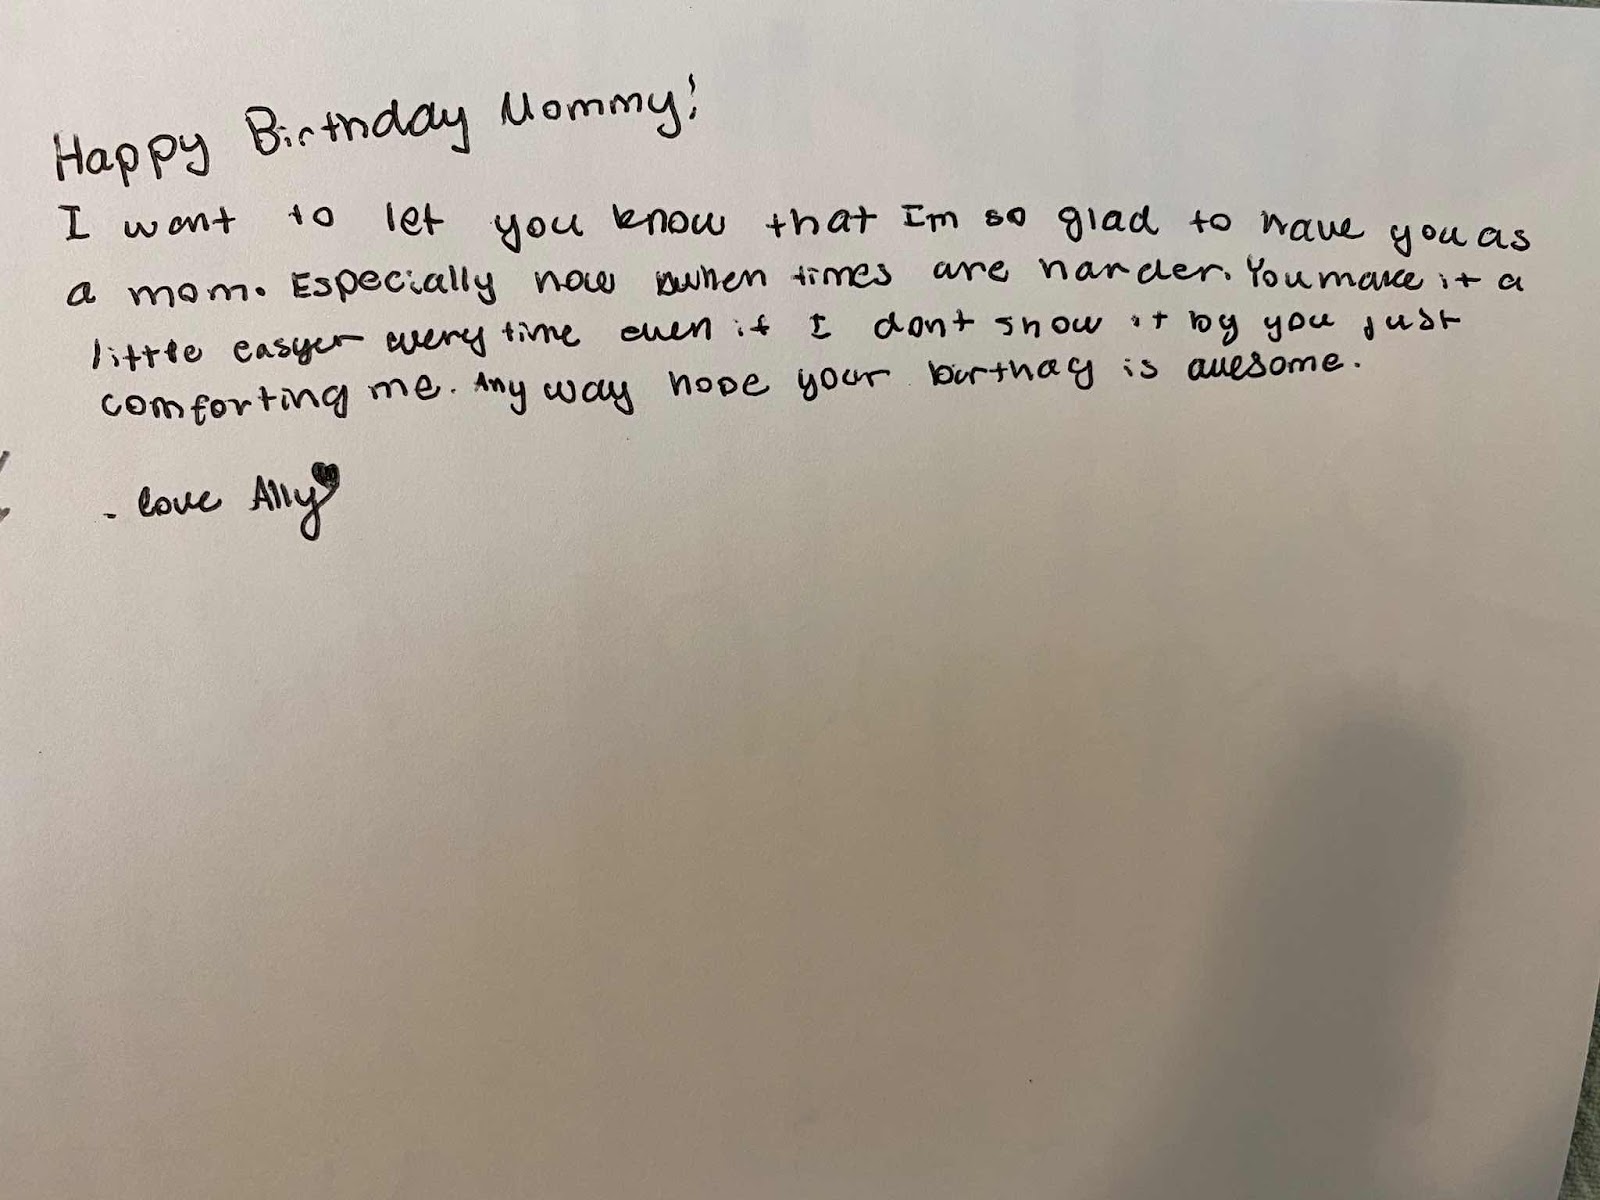 Happy Birthday Mommy!
I want to let you know that I'm so glad to have you as
a mom. Especially now when times are harder. You make it a
little easyer every time even if I dont show it by you just
comforting me. Any way hope your birthay is awesome.
- love Ally